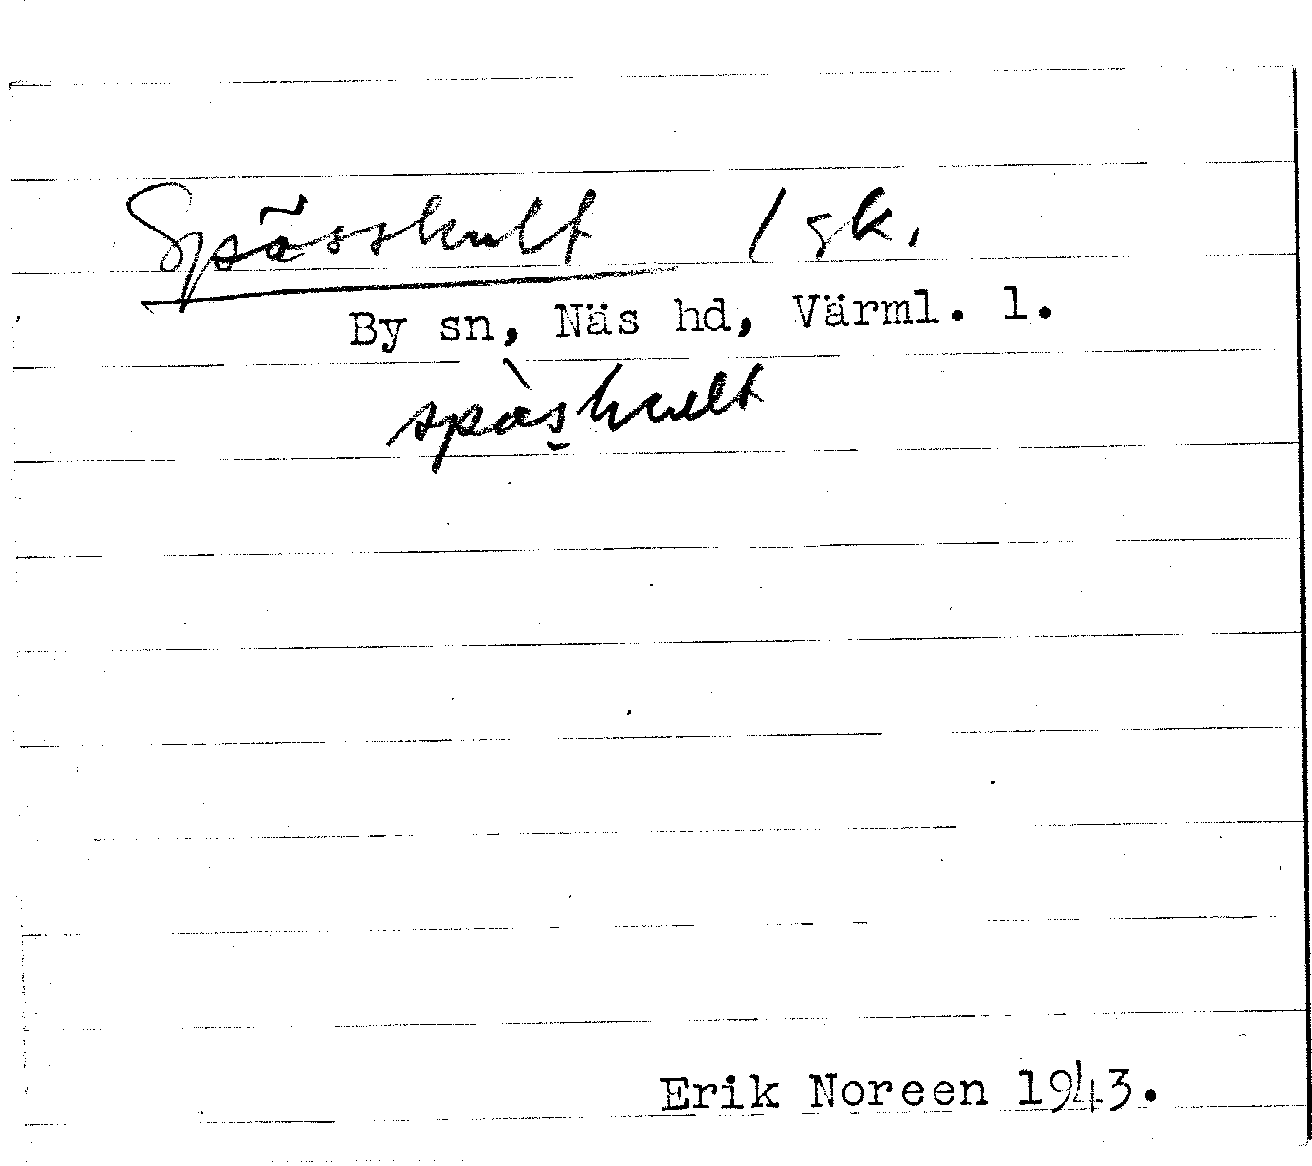 Spässhult / gk.
By sn, Näs hd, Värml. l.
spàs̱hult
Erik Noreen 1943.